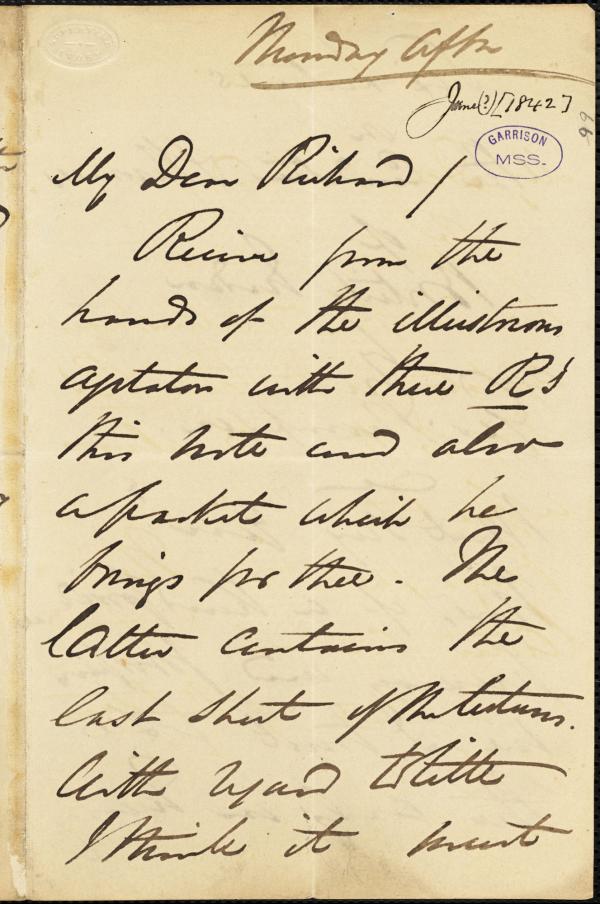 Monday Aftn
June(?) [1842]
99
GARRISON
MSS.
My Dear Richard /
Receive from the
hands of the illustrious
agitator with three R's
this note and also
a packet which he
brings for thee. The
latter contains the
last sheet of the lectures.
With regard to title
I think it must